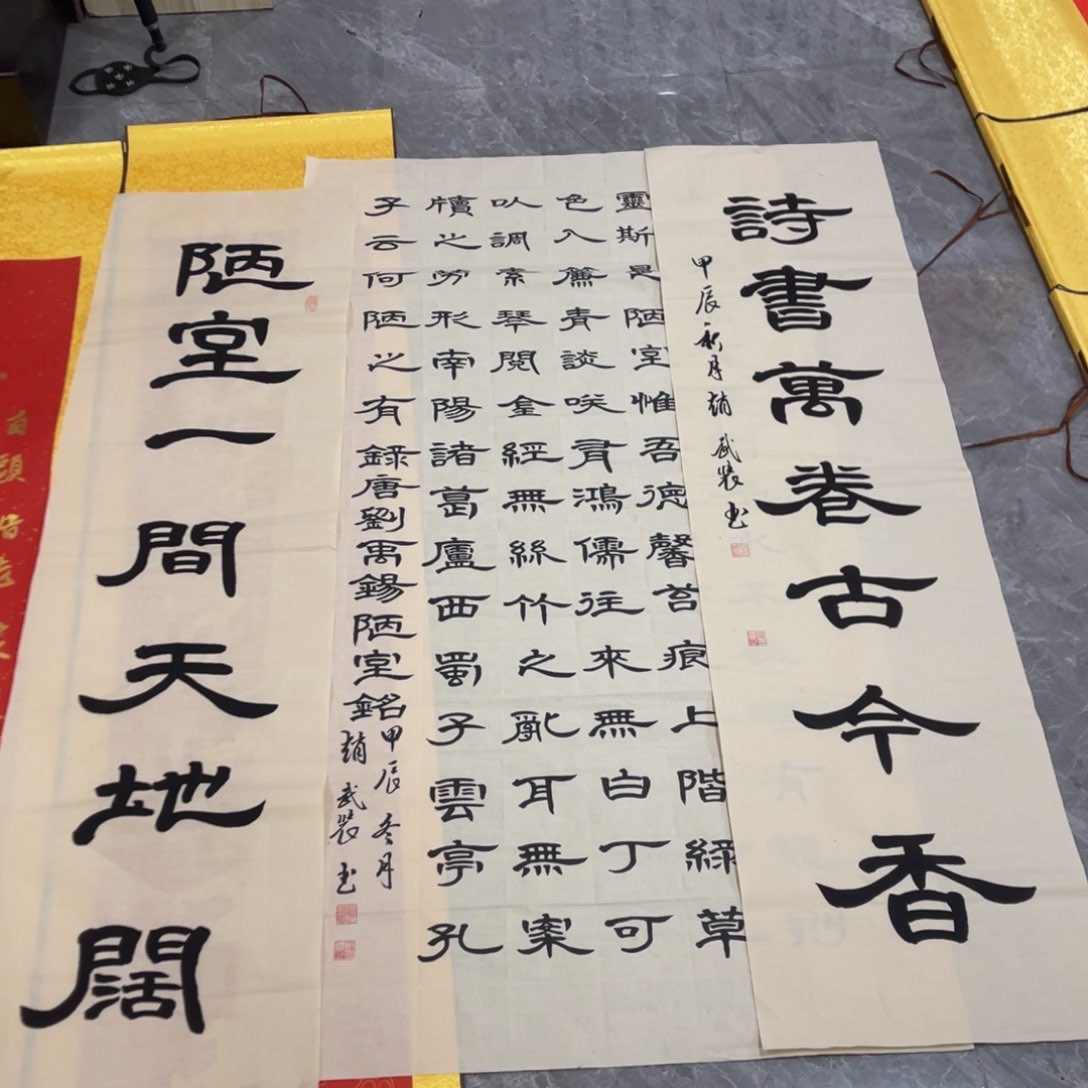 詩書萬卷古今香
甲辰秋月趙武裝书
靈斯是陋室惟吾德馨苔痕上階緑草
色入簾青談咲有鴻儒往來無白丁可
以調素琴閱金經無絲竹之亂耳無案
牘之勞形南陽諸葛廬西蜀子雲亭孔
子云何陋之有録唐劉禹錫陋室銘
甲辰冬月
趙武裝书
陋室一間天地闊